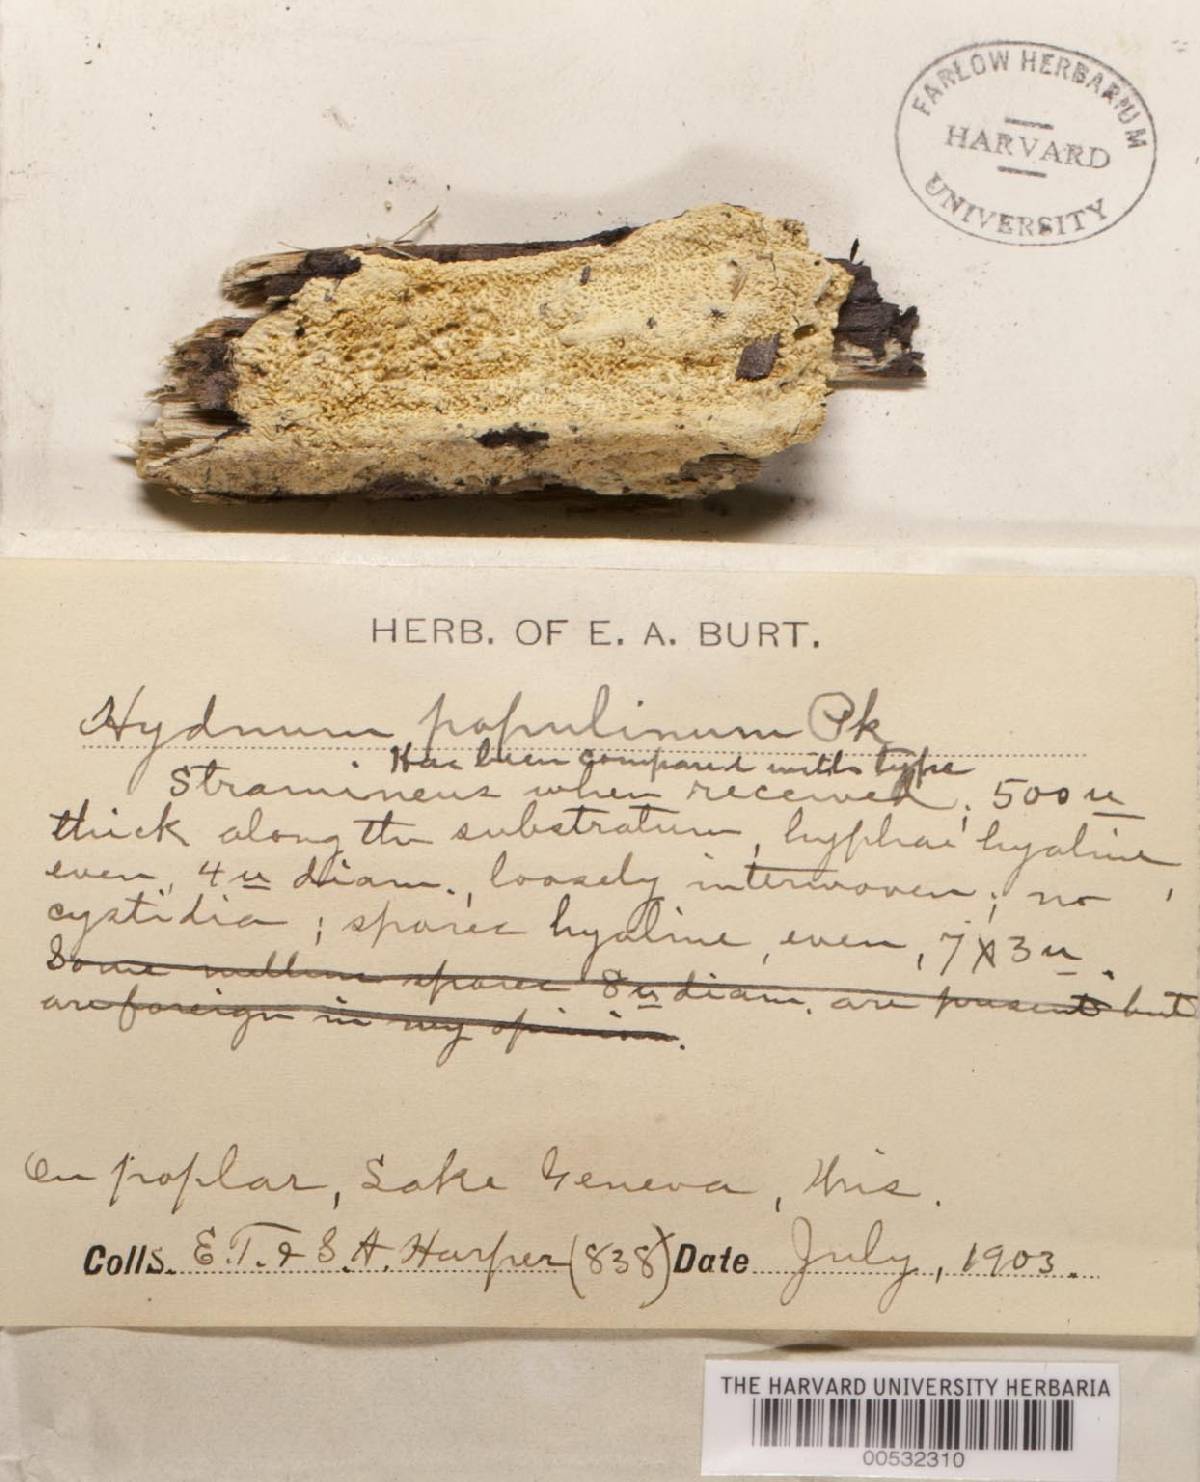 FARLOW HERBARIUM
HARVARD
UNIVERSITY
HERB. OF E. A. BURT.
Hydnum populinum Pk
Has been compared with type
Stramineus when received; 500 u
thick along the substratum, hyphae hyaline,
even, 4 u diam., loosely interwoven; no
cystidia; spores hyaline, even, 7 X 3 u.
Some melline spores 8 u diam. are present but
are foreign in my opinion.
On poplar, Lake Geneva, Wis.
Colls. E. T. & S. A. Harper (838) Date July, 1903.
THE HARVARD UNIVERSITY HERBARIA
00532310